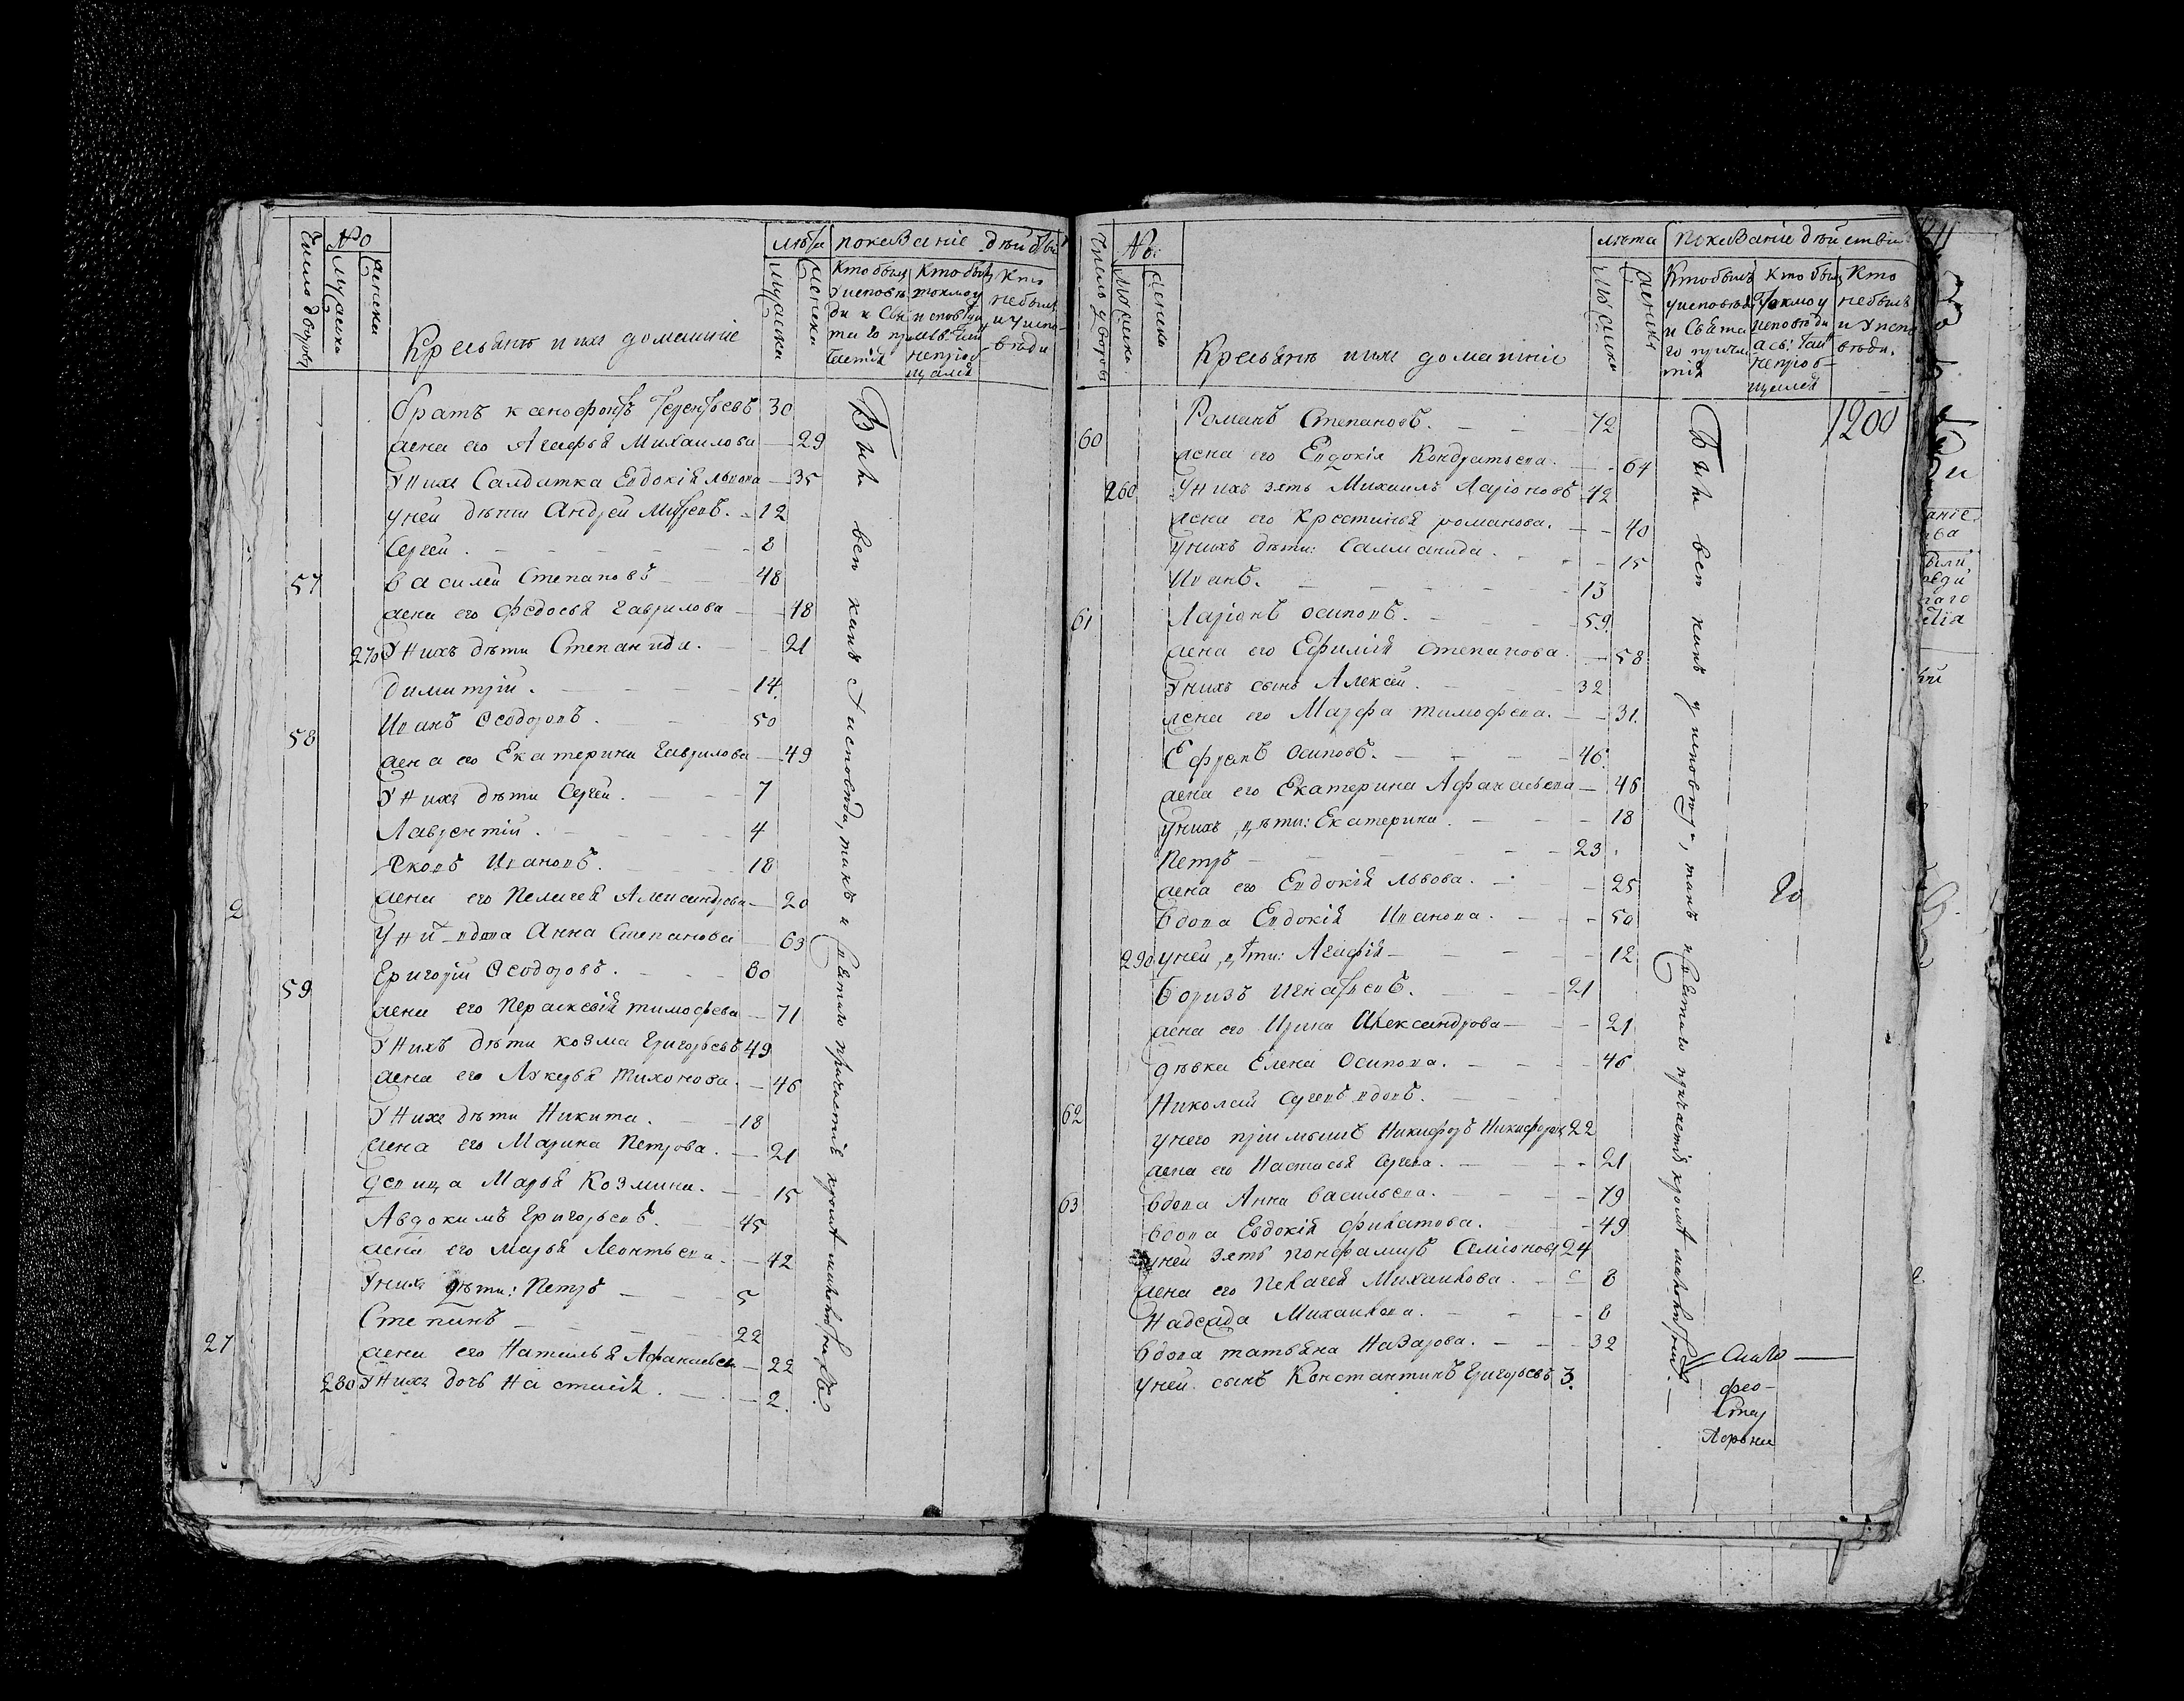 Число дворовъ
№
мужска
женска
Крестьянѣ и ихъ домашніе
лѣта
мужска
женска
показаніе дѣйстви
Кто был у исповѣди и Святаго причастія
Кто был токмо у исповѣди а св. таинъ не приобщался
Кто не былъ и у исповѣди
братъ Ксенофонтъ Терентьевъ 30
жена его Агафья Михаилова — 29
У нихъ Салдатка Евдокія Львова — 35
у ней дѣти Андрей Матвѣевъ. - 12
Сергей. - 8
57 Василей Степановъ - 48
жена его Федосья Гаврилова - 48
270 У нихъ дѣти Степанида. - 21
Димитрій. - 14.
58 Иванъ Феодоровъ. - 50
жена его Екатерина Гаврилова — 49
У нихъ дѣти Сергей. - 7
Лаврентій. - 4
Яковъ Ивановъ. - 18
жена его Пелагея Александрова — 20
2
У ней вдова Анна Степанова 63
59 Григорій Феодоровъ. - 80
жена его Параскевія Тимофеева — 71
У нихъ дѣти Козма Григорьевъ 49
жена его Лукерья Тихонова. - 46
У нихъ дѣти Никита. - 18
жена его Марина Петрова. - 21
девица Марья Козмина. - 15
Авдокимъ Григорьевъ. - 45
жена его Марья Леонтьева. - 42
У нихъ дѣти: Петръ - 5
Степанъ - 22
27
жена его Наталья Афанасьева — 22
280 У нихъ дочь Настасія. - 2.
Были все какъ у исповѣди, такъ и Святаго причастія кромѣ малолѣтныхъ.
Число дворовъ
№.
мужска
женска
Крестьянѣ и ихъ домашніе
лѣта
мужска
женска
показаніе дѣйстви
Кто былъ у исповѣди и Святаго причастія
Кто был токмо у исповѣди а св: таинъ не приобщался
Кто не былъ и у исповѣди.
1200
60 Романъ Степановъ. - 72
жена его Евдокія Кондратьева. - 64
260 У нихъ зять Михаилъ Ларіоновъ 42
жена его Крестинья Романова. - 40
У нихъ дѣти: Саломанида. - 15
Иванъ. - 13
61 Ларіонъ Осиповъ. - 59.
жена его Ефимія Степанова. - 58
У нихъ сынъ Алексей. - 32
жена его Марфа Тимофеева. - 31.
Ефремъ Осиповъ. - 46.
жена его Екатерина Афанасьева — 46
у нихъ дѣти: Екатерина. - 18
Петръ - 23.
жена его Евдокія Львова. - 25
20
вдова Евдокія Иванова. - 50
290 у ней дѣти: Агафія - 12
Боризъ Игнатьевъ. - 21
жена его Ирина Александрова - 21
дѣвка Елена Осипова. - 46
62 Николай Сергеевъ вдовъ.
у него пріимышъ Никифоръ Никифоровъ 22
жена его Настасья Сергеева. - 21
63 вдова Анна Васильева. - 79
вдова Евдокія Филатова. - 49
у ней зять Панфамиръ Семіоновъ 24
жена его Пелагея Михаилова. - 8
Надежда Михаилова. - 8
вдова Татьяна Назарова. - 32
у ней сынъ Константинъ Григорьевъ 3.
Были все какъ у исповѣди, такъ и Святаго причастія кромѣ малолѣтныхъ. —